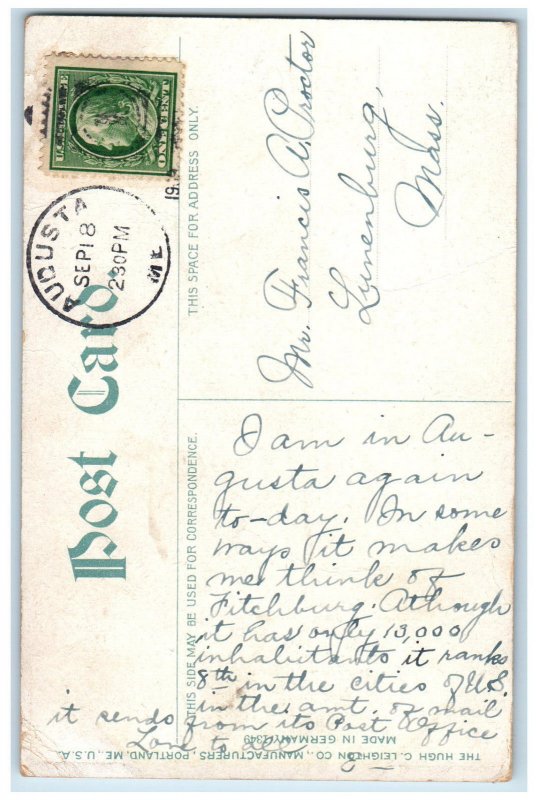 ONE CENT
AUGUSTA
SEP 18
230PM
ME
Post Card.
THIS SPACE FOR ADDRESS ONLY.
Mr. Francis A. Proctor
Lunenburg,
Mass.
THIS SIDE MAY BE USED FOR CORRESPONDENCE.
I am in Au-
gusta again
to-day. In some
ways it makes
me think of
Fitchburg. Although
it has only 13,000
inhabitants it ranks
8th in the cities of U.S.
in the amt. of mail
it sends from its Post Office
Love to all
MADE IN GERMANY
THE HUGH C. LEIGHTON CO., MANUFACTURERS, PORTLAND, ME., U.S.A.